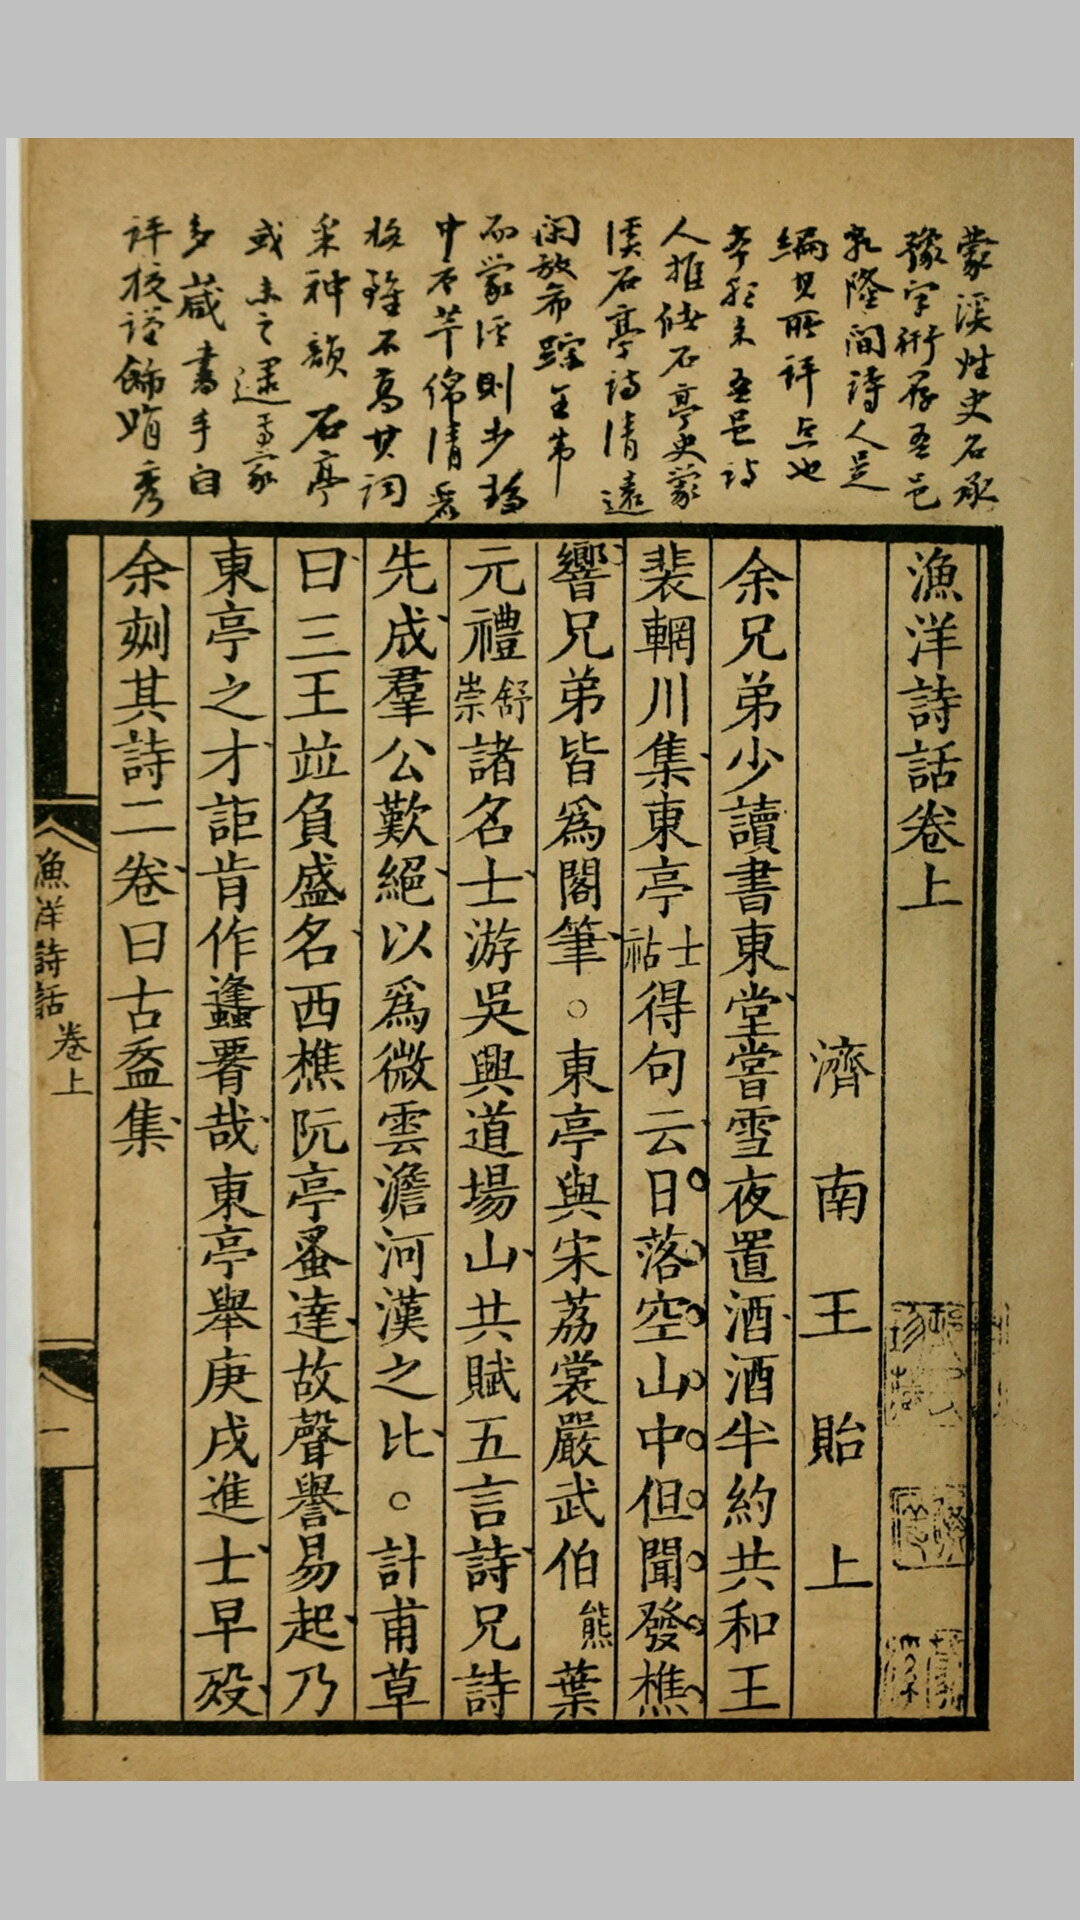 蒙溪姓史名承
豫字衎存吾邑
乾隆間詩人是
編其所評点也
本朝末吾邑詩
人推儲石亭史蒙
溪石亭詩清遠
閑放希蹤王韋
而蒙溪則少
中有芊綿清
格雖不高其詞
采神韻石亭
或未之逮焉家
多藏書手自
評校
漁洋詩話卷上
濟南王貽上
余兄弟少讀書東堂嘗雪夜置酒酒半約共和王
裴輞川集東亭士祜得句云日落空山中但聞發樵
響兄弟皆爲閣筆○東亭與宋荔裳嚴武伯熊葉
元禮舒崇諸名士游吳興道場山共賦五言詩兄詩
先成羣公歎絕以爲微雲澹河漢之比○計甫草
曰三王竝負盛名西樵阮亭蚤達故聲譽易起乃
東亭之才詎肯作蠭𦣱哉東亭舉庚戌進士早殁
余刻其詩二卷曰古盋集
漁洋詩話 卷上
一